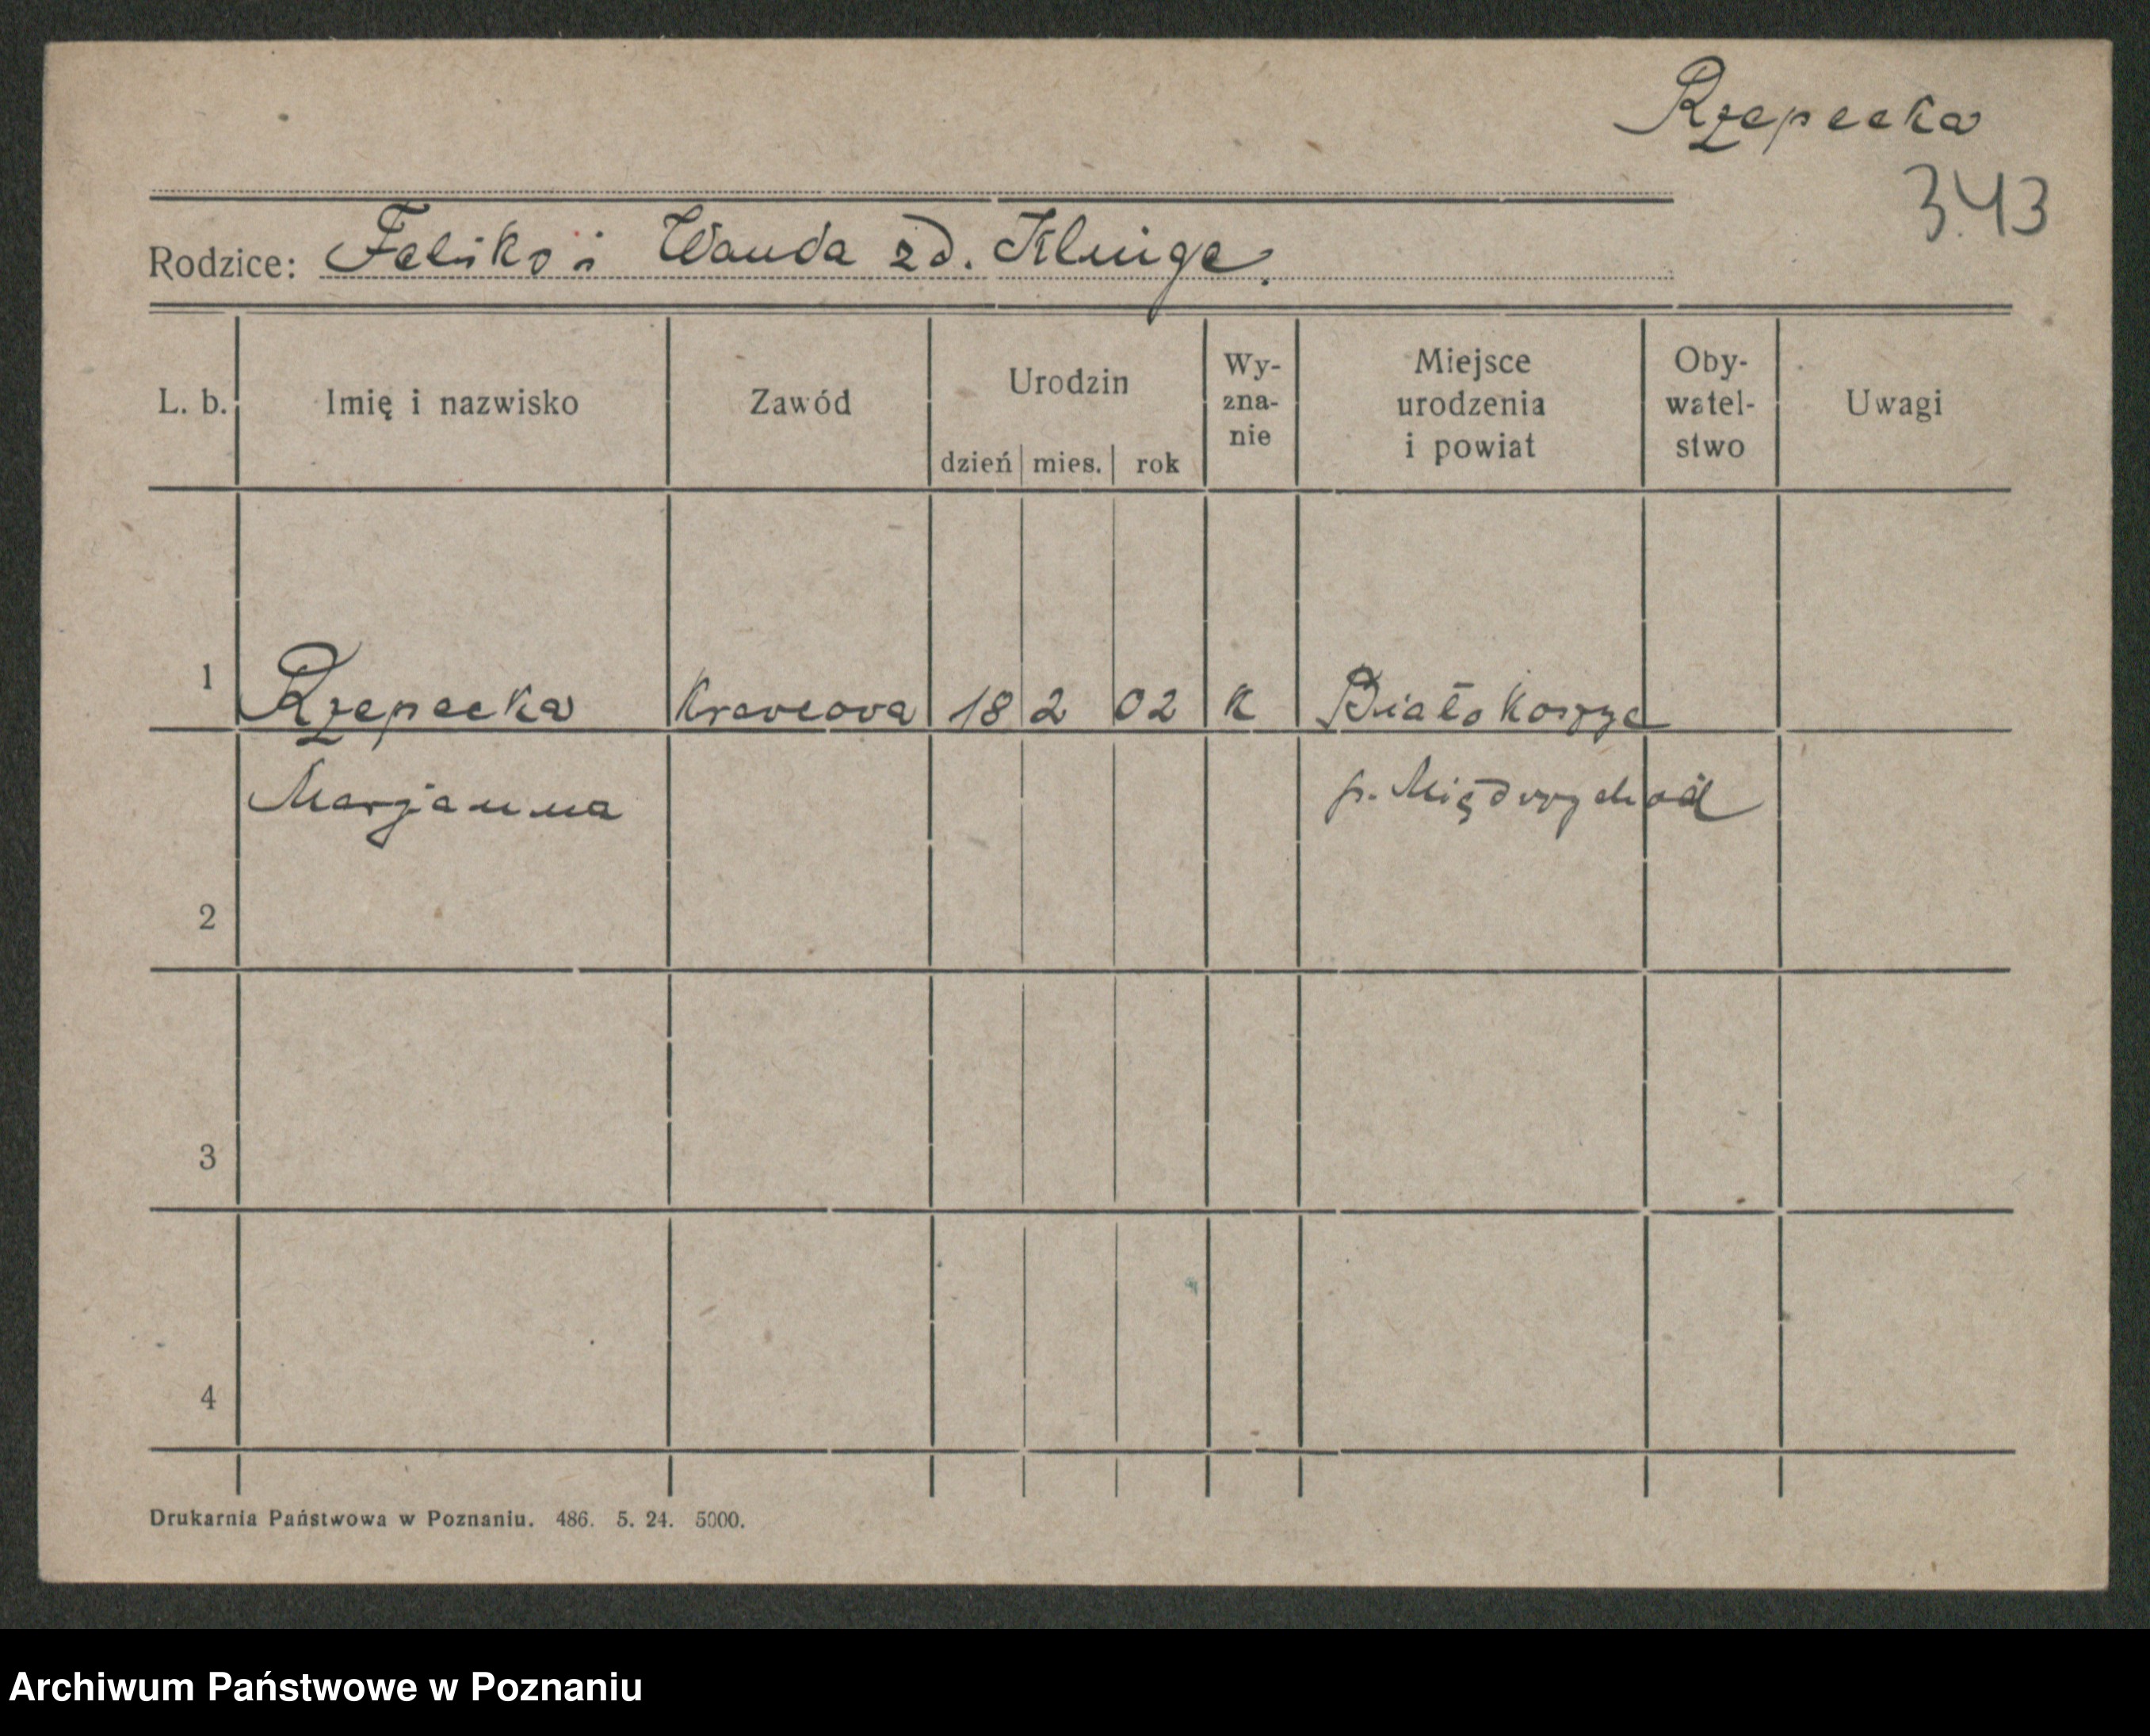 Rzepecka
343
Rodzice: Feliks i Wanda zd. Kluige.
L. b. Imię i nazwisko Zawód Urodzin dzień mies. rok Wy-zna-nie Miejsce urodzenia i powiat Oby-watel-stwo Uwagi
1 Rzepecka Krawcowa 18 2 02 K Białokoszyce
Marjanna p. Międzychód
2
3
4
Drukarnia Państwowa w Poznaniu. 486. 5. 24. 5000.
Archiwum Państwowe w Poznaniu